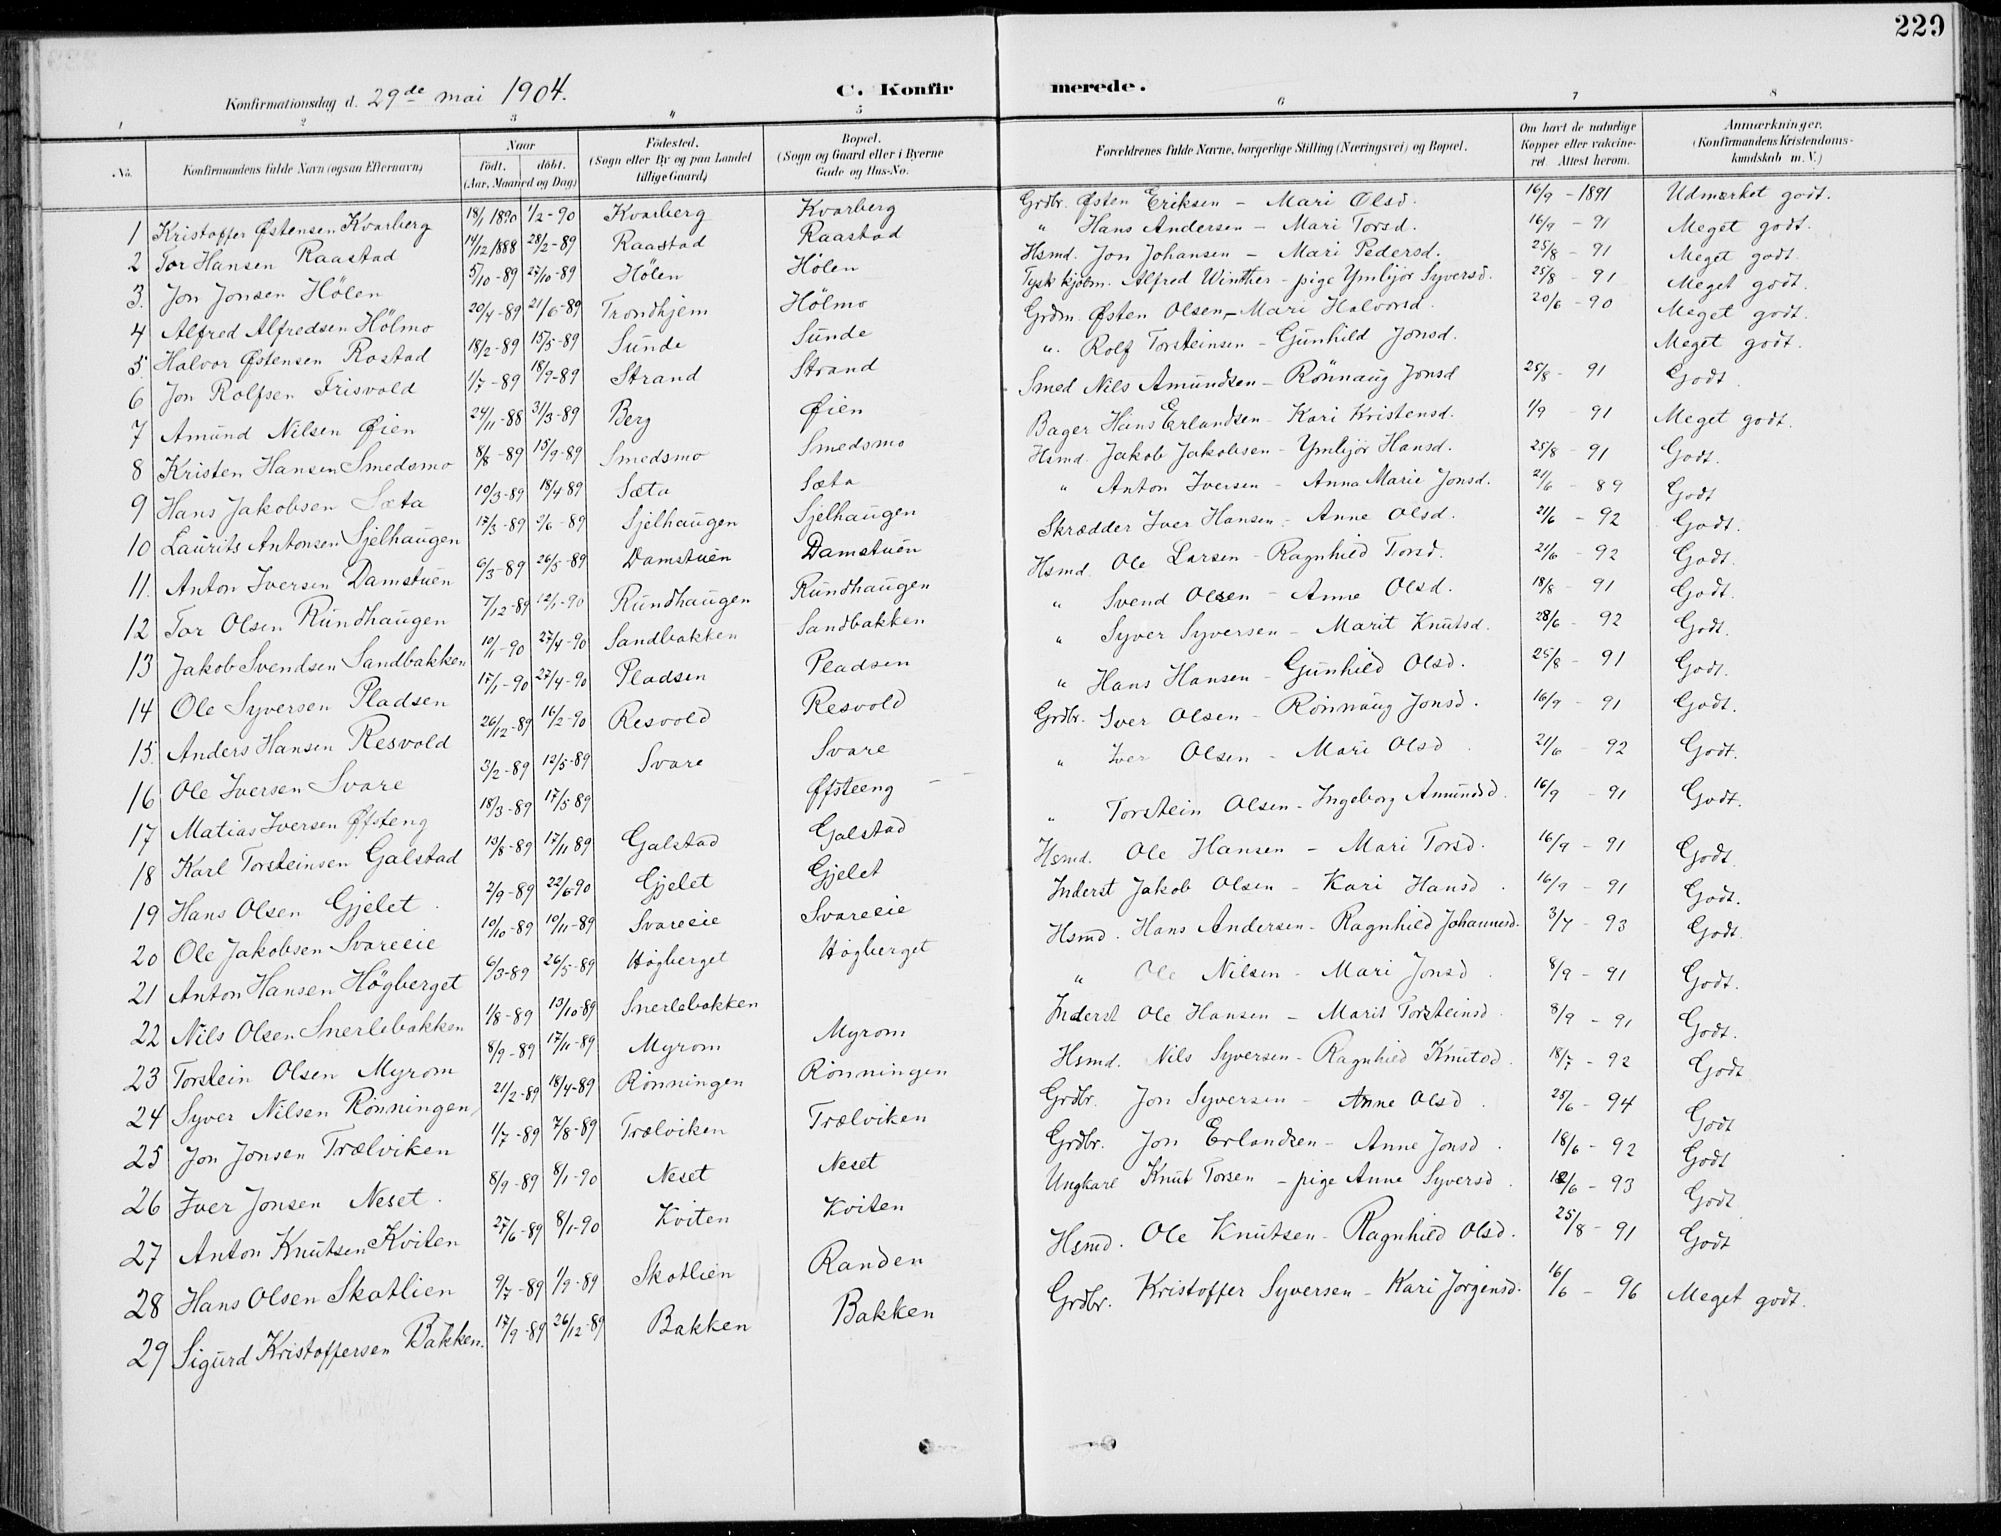 229
Konfirmationsdag d. 29de mai 1904. C. Konfirmerede.
1 2 3 4 5 6 7 8
No. Konfirmandens fulde Navn (ogsaa Efternavn) Naar Født. døbt. (Aar, Maaned og Dag) Fødested. (Sogn eller By og paa Landet tillige Gaard) Bopæl. (Sogn og Gaard eller i Byerne Gade og Hus-No. Forældrenes fulde Navne, borgerlige Stilling (Næringsvei) og Bopæl. Om havt de naturlige Kopper eller vakcineret. Attest herom. Anmærkninger. (Konfirmandens Kristendomskundskab m. V.)
1 Kristoffer Østensen Kvarberg 18/1 1890 1/2-90 Kvarberg Kvarberg Grdbr. Østen Eriksen - Mari Olsd. 16/9 - 1891 Udmærket godt.
2 Tor Hansen Raastad 14/12 1888 28/2-89 Raastad Raastad " Hans Andersen - Mari Torsd. 16/9 - 91 Meget godt.
3. Jon Jonsen Hölen 5/10-89 27/10-89 Hölen Hölen Hsmd. Jon Johansen - Mari Pedersd. 25/8 - 91 Meget godt.
4 Alfred Alfredsen Hölmo 20/4-89 21/6-89 Trondhjem Hölmo Tysk kjøbm. Alfred Winther - pige Ymbjör Syversd. 25/8 - 91 Meget godt.
5 Halvor Østensen Rostad 18/2-89 15/5-89 Sunde Sunde Grdm. Østen Olsen - Mari Halvorsd. 20/6 - 90 Meget godt.
6 Jon Rolfsen Frisvold 1/7-89 18/9-89 Strand Strand ". Rolf Torsteinsen - Gunhild Jonsd. Meget godt.
7 Amund Nilsen Øien 24/11-88 31/3-89 Berg Øien Smed Nils Amundsen - Rönnaug Jonsd 25/8 - 91 Godt.
8 Kristen Hansen Smedsmo 8/8-89 15/9-89 Smedsmo Smedsmo Bager Hans Erlandsen - Kari Kristensd. 1/9 - 91 Meget godt.
9 Hans Jakobsen Sæta 10/3-89 18/4 89 Sæta Sæta Hsmd. Jakob Jakobsen - Ymbjör Hansd. 25/8 - 91 Godt.
10 Laurits Antonsen Sjelhaugen 17/3-89 9/6-89 Sjelhaugen Sjelhaugen " Anton Iversen - Anna Marie Jonsd. 21/6 - 89 Godt
11. Anton Iversen Damstuen 6/3-89 26/5-89 Damstuen Damstuen Skrædder Iver Hansen - Anne Olsd. 21/6 - 92 Godt.
12 Tor Olsen Rundhaugen 7/12-89 12/1-90 Rundhaugen Rundhaugen Hsmd. Ole Larsen - Ragnhild Torsd. 21/6 - 92 Godt.
13 Jakob Svendsen Sandbakken 10/1-90 27/4-90 Sandbakken Sandbakken " Svend Olsen - Anne Olsd. 18/8 - 91 Godt.
14 Ole Syversen Pladsen 17/1-90 27/4-90 Pladsen Pladsen " Syver Syversen - Marit Knutsd. 28/6 - 92 Godt.
15. Anders Hansen Resvold 26/12-89 16/2-90 Resvold Resvold " Hans Hansen - Gunhild Olsd. 25/8 - 91 Godt.
16 Ole Iversen Svare 3/2-89 12/5-89 Svare Svare Grdbr. Iver Olsen - Rönnaug Jonsd. 16/9 - 91 Godt.
17 Matias Iversen Øfsteng 18/3-89 17/5 89 Øfsteeng - - " Iver Olsen - Mari Olsd 21/6 - 92 Godt.
18 Karl Torsteinsen Galstad 13/8-89 17/11 89 Galstad Galstad " Torstein Olsen - Ingeborg Amundsd. 16/9 - 91 Godt.
19 Hans Olsen Gjelet. 2/9-89 22/6 90 Gjelet Gjelet Hsmd. Ole Hansen - Mari Torsd. 16/9 - 91 Godt.
20 Ole Jakobsen Svareeie 10/10-89 10/11-89 Svareeie Svareeie Inderst Jakob Olsen - Kari Hansd. 16/9 - 91 Godt.
21 Anton Hansen Högberget 6/3-89 26/5-89 Högberget Högberget Hsmd. Hans Andersen - Ragnhild Johannesd. 3/7 - 93 Godt.
22 Nils Olsen Snerlebakken 1/8-89 13/10-89 Snerlebakken " Ole Nilsen - Mari Jonsd. 8/9 - 91 Godt.
23 Torstein Olsen Myrom 8/9-89 17/11-89 Myrom Myrom Inderst Ole Hansen - Marit Torsteinsd. 8/9 - 91 Godt.
24 Syver Nilsen Rönningen 21/2-89 18/4-89 Rönningen Rönningen Hsmd. Nils Syversen - Ragnhild Knutsd. 18/7 - 92 Godt
25 Jon Jonsen Trælviken 1/7-89 7/8-89 Trælviken Trælviken Grdbr. Jon Syversen - Anne Olsd. 25/6 - 94 Godt
26 Iver Jonsen Neset. 8/9-89 8/1-90 Neset Neset Grdbr. Jon Erlandsen - Anne Jonsd. 18/6 - 92 Godt
27 Anton Knutsen Kviten 27/6-89 8/1-90 Kviten Kviten Ungkarl Knut Torsen - pige Anne Syversd. /6 - 93 Godt
28 Hans Olsen Skotlien 9/7-89 1/9-89 Skotlien Randen Hsmd. Ole Knutsen - Ragnhild Olsd. 25/8 - 91 Godt
29 Sigurd Kristoffersen Bakken. 17/9-89 26/12-89 Bakken Bakken Grdbr. Kristoffer Syversen - Kari Jörgensd. 16/6 - 96 Meget godt.